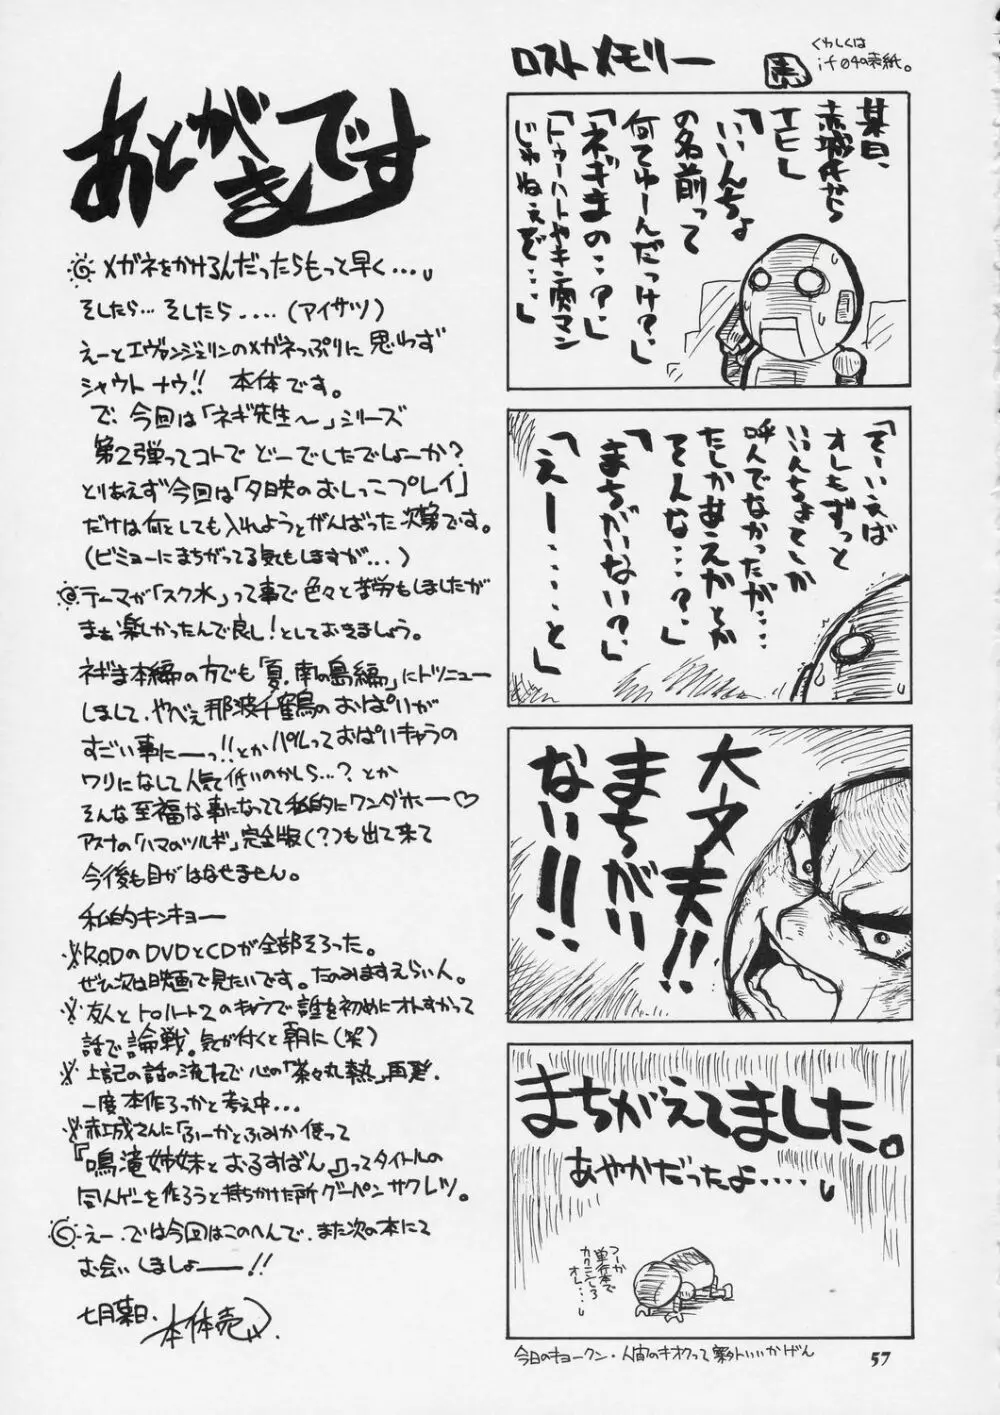 ロストメモリー
くわしくは
if04の表紙。
某日、
赤城氏から
TEL
「いいんちょ
の名前って
何てゆーんだっけ?」
「ネギまの・・?」
「トゥーハートやキン肉マン
じゃねぇぞ・・」
「そーいえば
オレもずっと
いいんちょてしか
呼んでなかったが・・・
たしかあえかとか
そんな・・・?」
「まちがいない?」
「えー・・・・と」
大丈夫!!
まちがい
ない!!!
まちがえてました。
あやかだったよ・・・・・
つーか
単行本で
カクニンしろ
オレ・・・
今日のキョークン・人間のキオクって案外いいかげん
57
あとがきです
メガネをかけるんだったらもっと早く・・・
そしたら・・・そしたら・・・・(アイサツ)
えーとエヴァンジェリンのメガネっぷりに思わず
シャウトナウ!! 本体です。
で、今回は「ネギ先生〜」シリーズ
第2弾ってコトでどーでしたでしょーか?
とりあえず今回は「夕映のおしっこプレイ」
だけは何としても入れようとがんばった次第です。
(ビミョーにまちがってる気もしますが・・・)
テーマが「スク水」って事で色々と苦労もしましたが
まぁ楽しかったんで良し!としておきましょう。
ネギま本編の方でも「夏、南の島編」にトツニュー
しまして、やべぇ那波千鶴のおぱいが
すごい事にーーっ!!とかパルっておぱいキャラの
ワリになして人気低いのかしら・・・?とか
そんな至福な事になってて私的にワンダホー♡
アスナの「ハマのツルギ」完全版(?)も出て来て
今後も目がはなせません。
私的キンキョー
※R.O.DのDVDとCDが全部そろった。
ぜひ次は映画で見たいです。たのみますえらい人。
※友人とトゥハート2のキャラで誰を初めにオトすかって
話で論戦。気が付くと朝に(笑)
※上記の話の流れで心の「茶々丸熱」再発。
一度本作ろっかと考え中・・・
※赤城さんに「ふーかとふみか使って
『鳴滝姉妹とおるすばん』」ってタイトルの
同人ゲーを作ろうと持ちかけた所グーペンサクレツ。
えー、では今回はこのへんで、また次の本にて
お会いしましょーー!!
七月某日、本体売